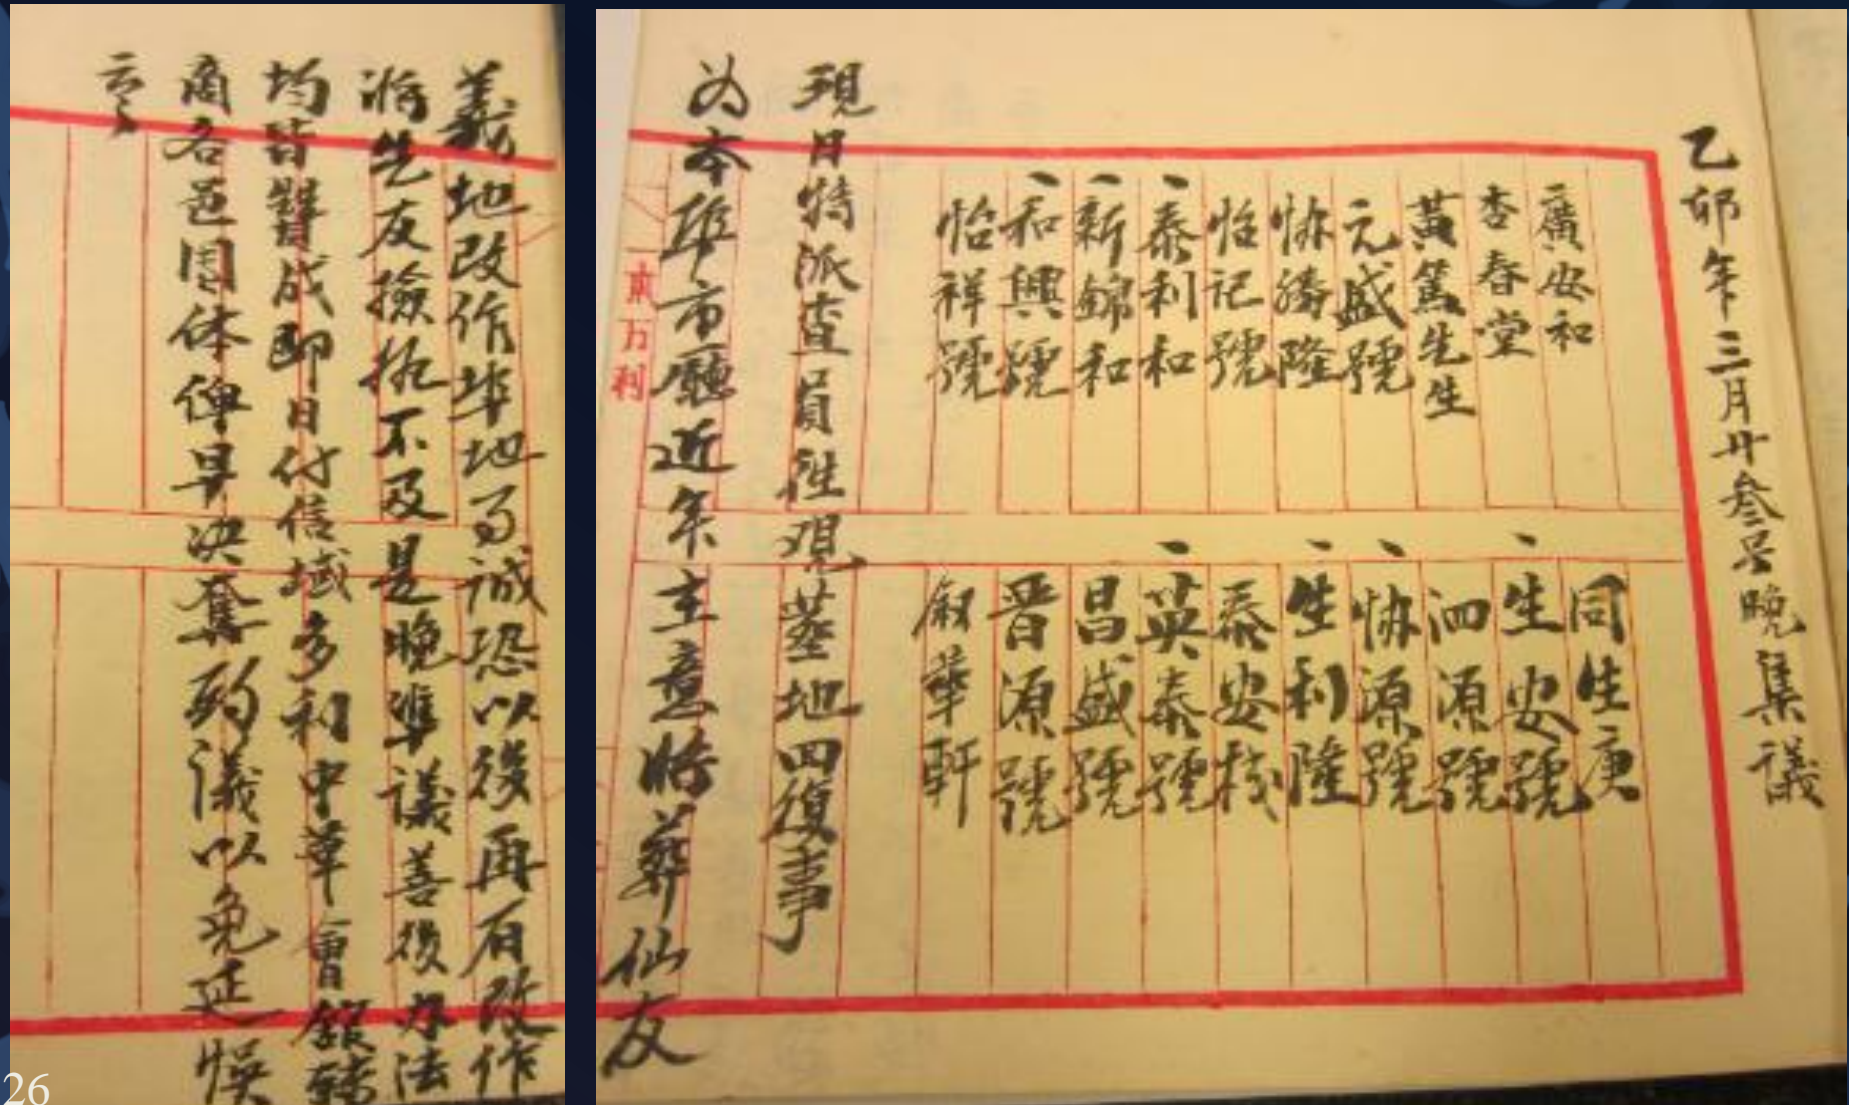 乙卯年三月廿叁号晚集議
廣安和
杏春堂
黃篤生生
元盛號
協勝隆
怡記號
泰利和
新錦和
和興號
怡祥號
同生庚
生安號
泗源號
協源號
生利隆
泰安棧
英泰號
昌盛號
晋源號
叙華軒
現日特派查員往覌塋地回復事
为本埠市廳近年主意将葬仙友
東万利
義地改作埠地每誠恐以後再有改作
将先友撿执不及是晚準議善後办法
均皆賛成即日付信域多利中華會館轉
商各邑团体俾早决奪酌議以免延悞
云云
26